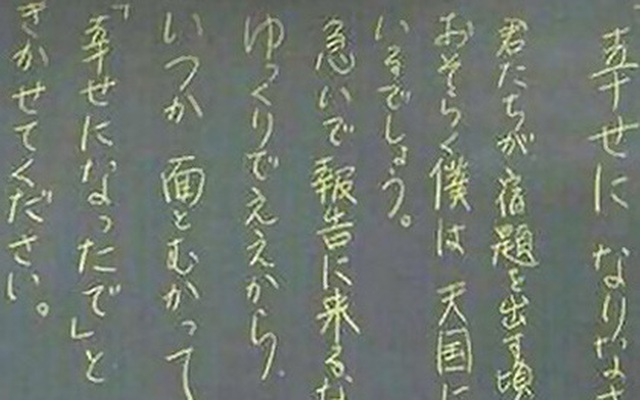 幸せになりなさ
君たちが宿題を出す頃
おそらく僕は 天国に
いるでしょう。
急いで報告に来るな
ゆっくりでええから
いつか 面とむかって
「幸せになったで」と
きかせてください。